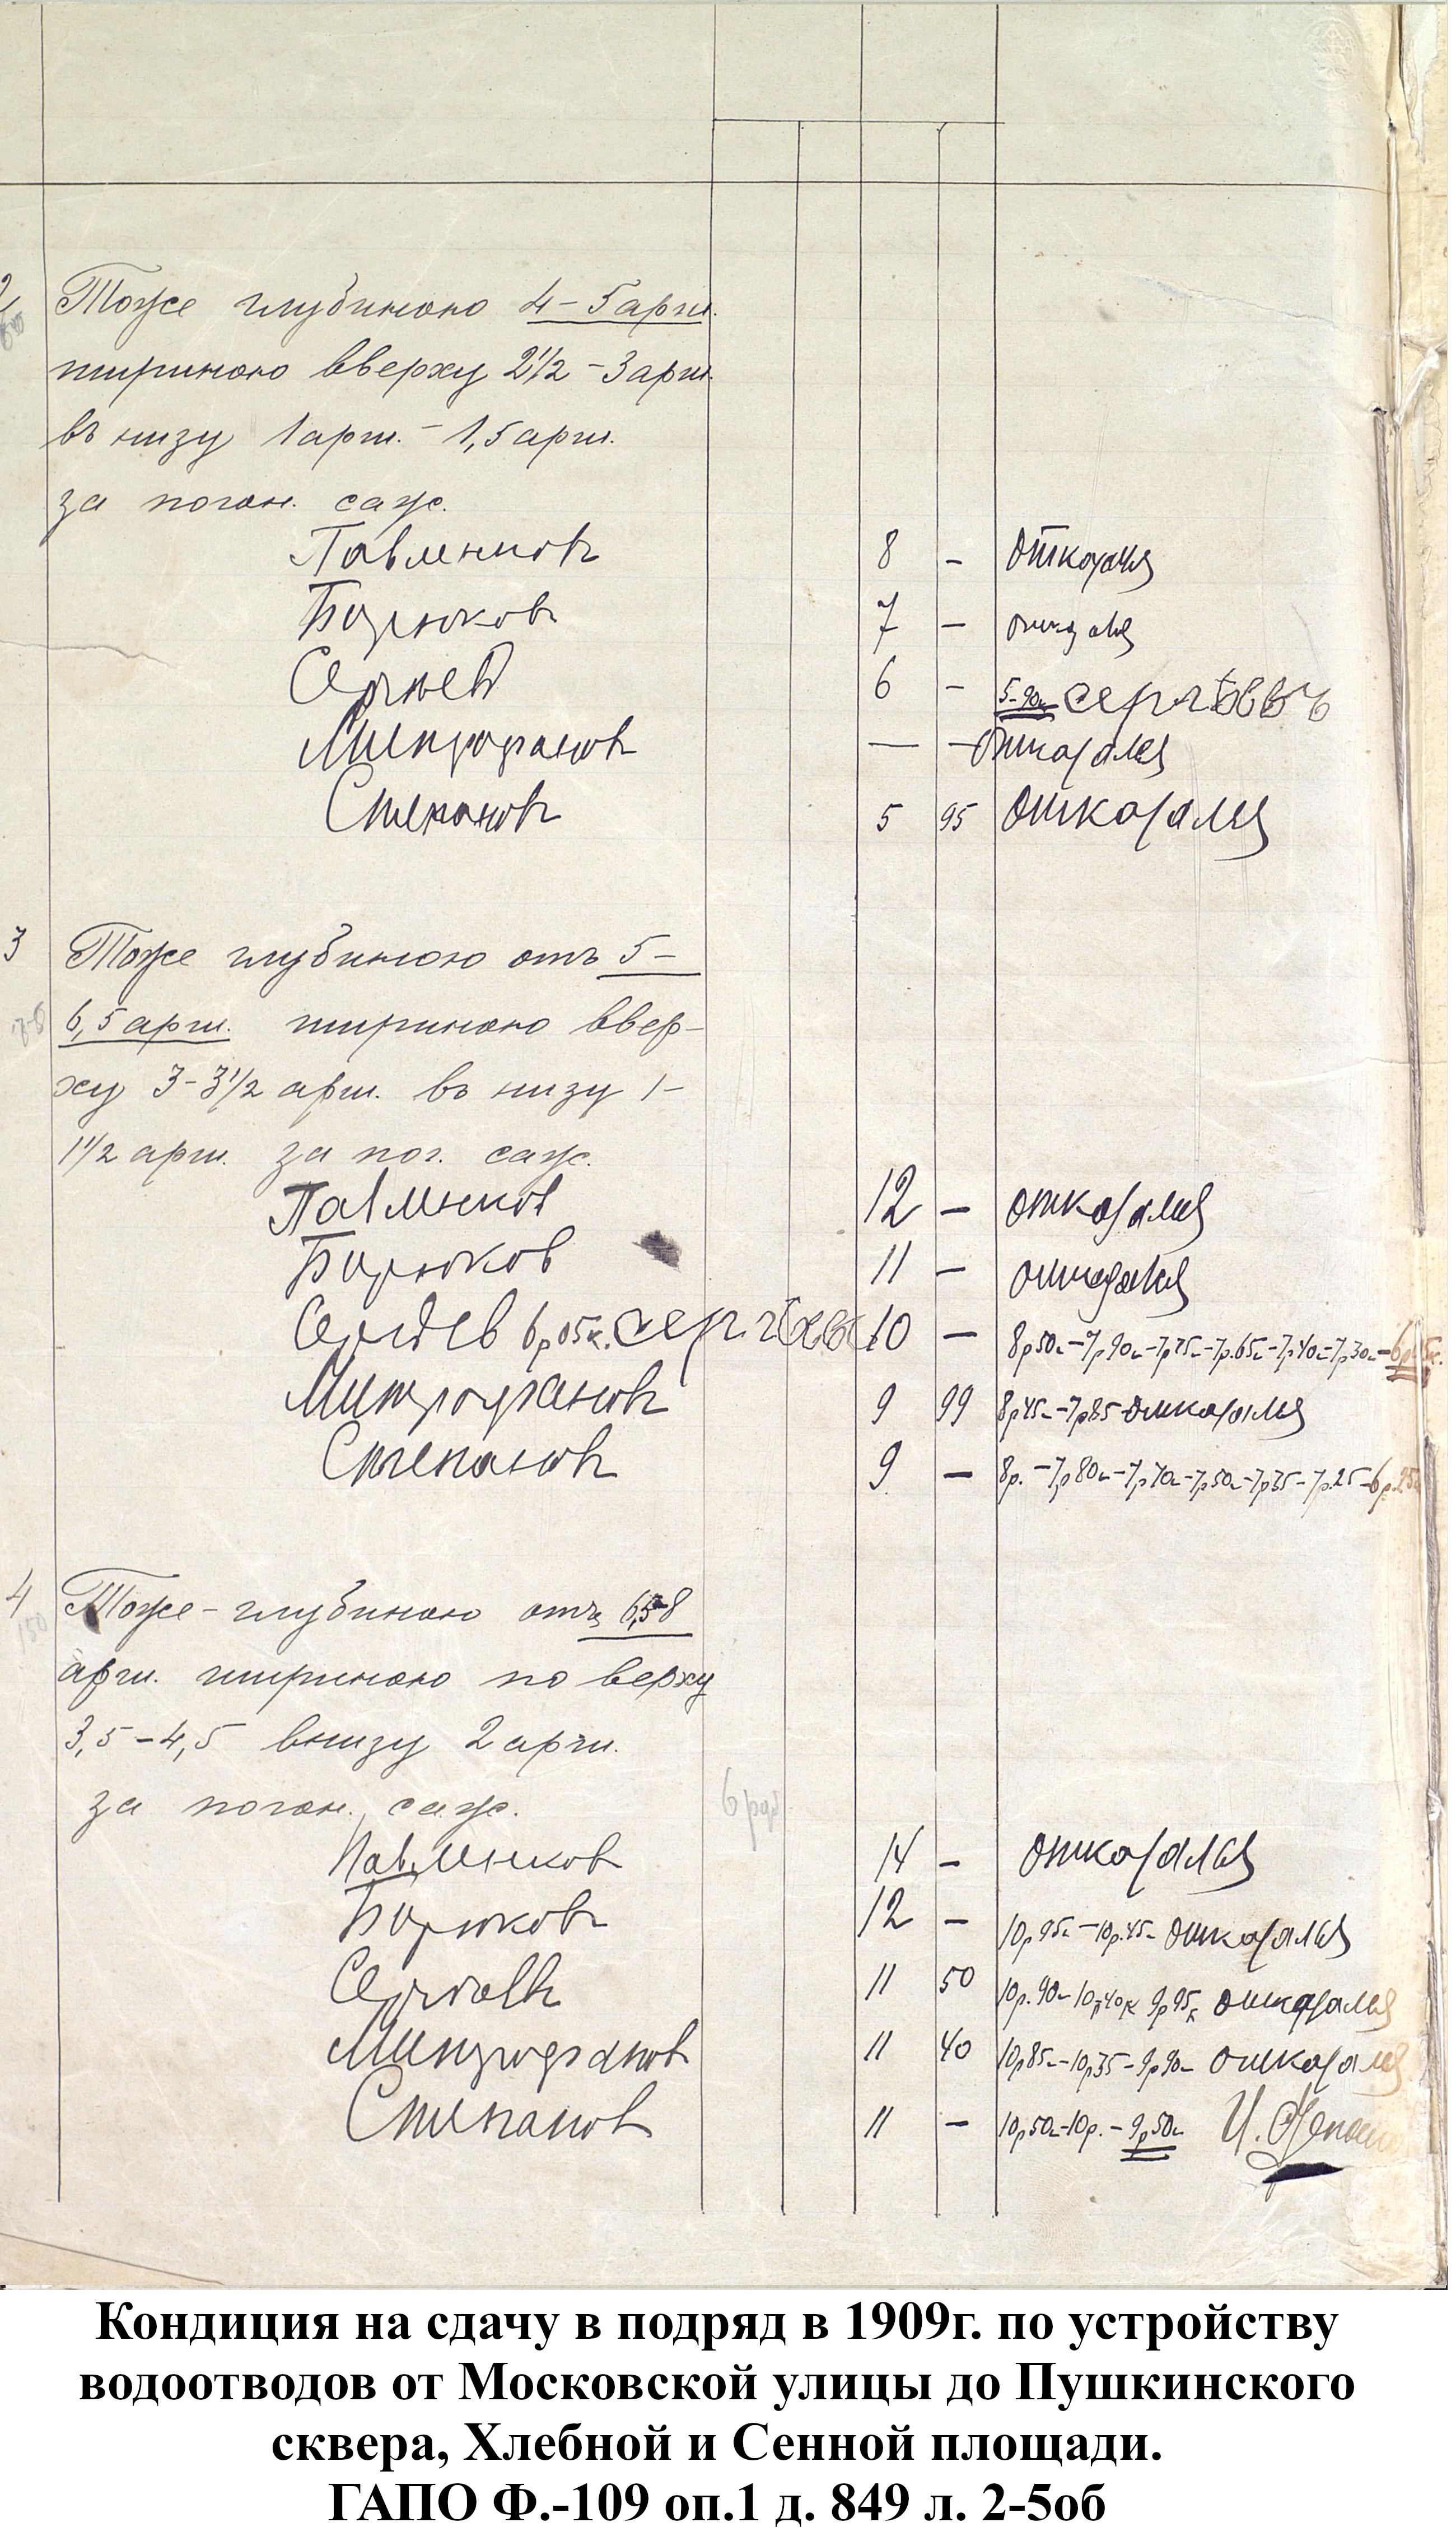 2 Тоже глубиною 4 – 5 арш.
шириною вверху 2 1/2 – 3 арш.
въ низу 1 арш. – 1,5 арш.
за погон. саж.
Павленковъ 8 – отказался
Бирюковъ 7 – отказался
Сергѣевъ 6 – 5-90к Сергѣевъ
Митрофановъ — — отказался
Степановъ 5 95 отказался
3 Тоже глубиною отъ 5 –
6,5 арш. шириною ввер-
ху 3 – 3 1/2 арш. въ низу 1 –
1 1/2 арш. за пог. саж.
Павленков 12 – отказался
Бирюков 11 – отказался
Сергѣев 6р 05к. Сергѣевъ 10 – 8р50к – 7р90к – 7р75к – 7р.65к – 7р40к – 7р30к –
Митрофановъ 9 99 8р45к – 7р85 отказался
Степановъ 9 – 8р. – 7р80к – 7р70к – 7р50к – 7р35 – 7р.25 – 6р.25к
4 Тоже – глубиною отъ 6,5-8
150
арш. шириною по верху
3,5 – 4,5 внизу 2 арш.
за погон. саж. 6 руб
Павленков 14 – отказался
Бирюковъ 12 – 10р95к – 10р.45к отказался
Сергѣевъ 11 50 10р.90к 10р40к 9р95к отказался
Митрофановъ 11 40 10р85к – 10р35 – 9р90к отказался
Степановъ 11 – 10р50к – 10р. – 9р50к И. Степанов
Кондиция на сдачу в подряд в 1909г. по устройству
водоотводов от Московской улицы до Пушкинского
сквера, Хлебной и Сенной площади.
ГАПО Ф.-109 оп.1 д. 849 л. 2-5об